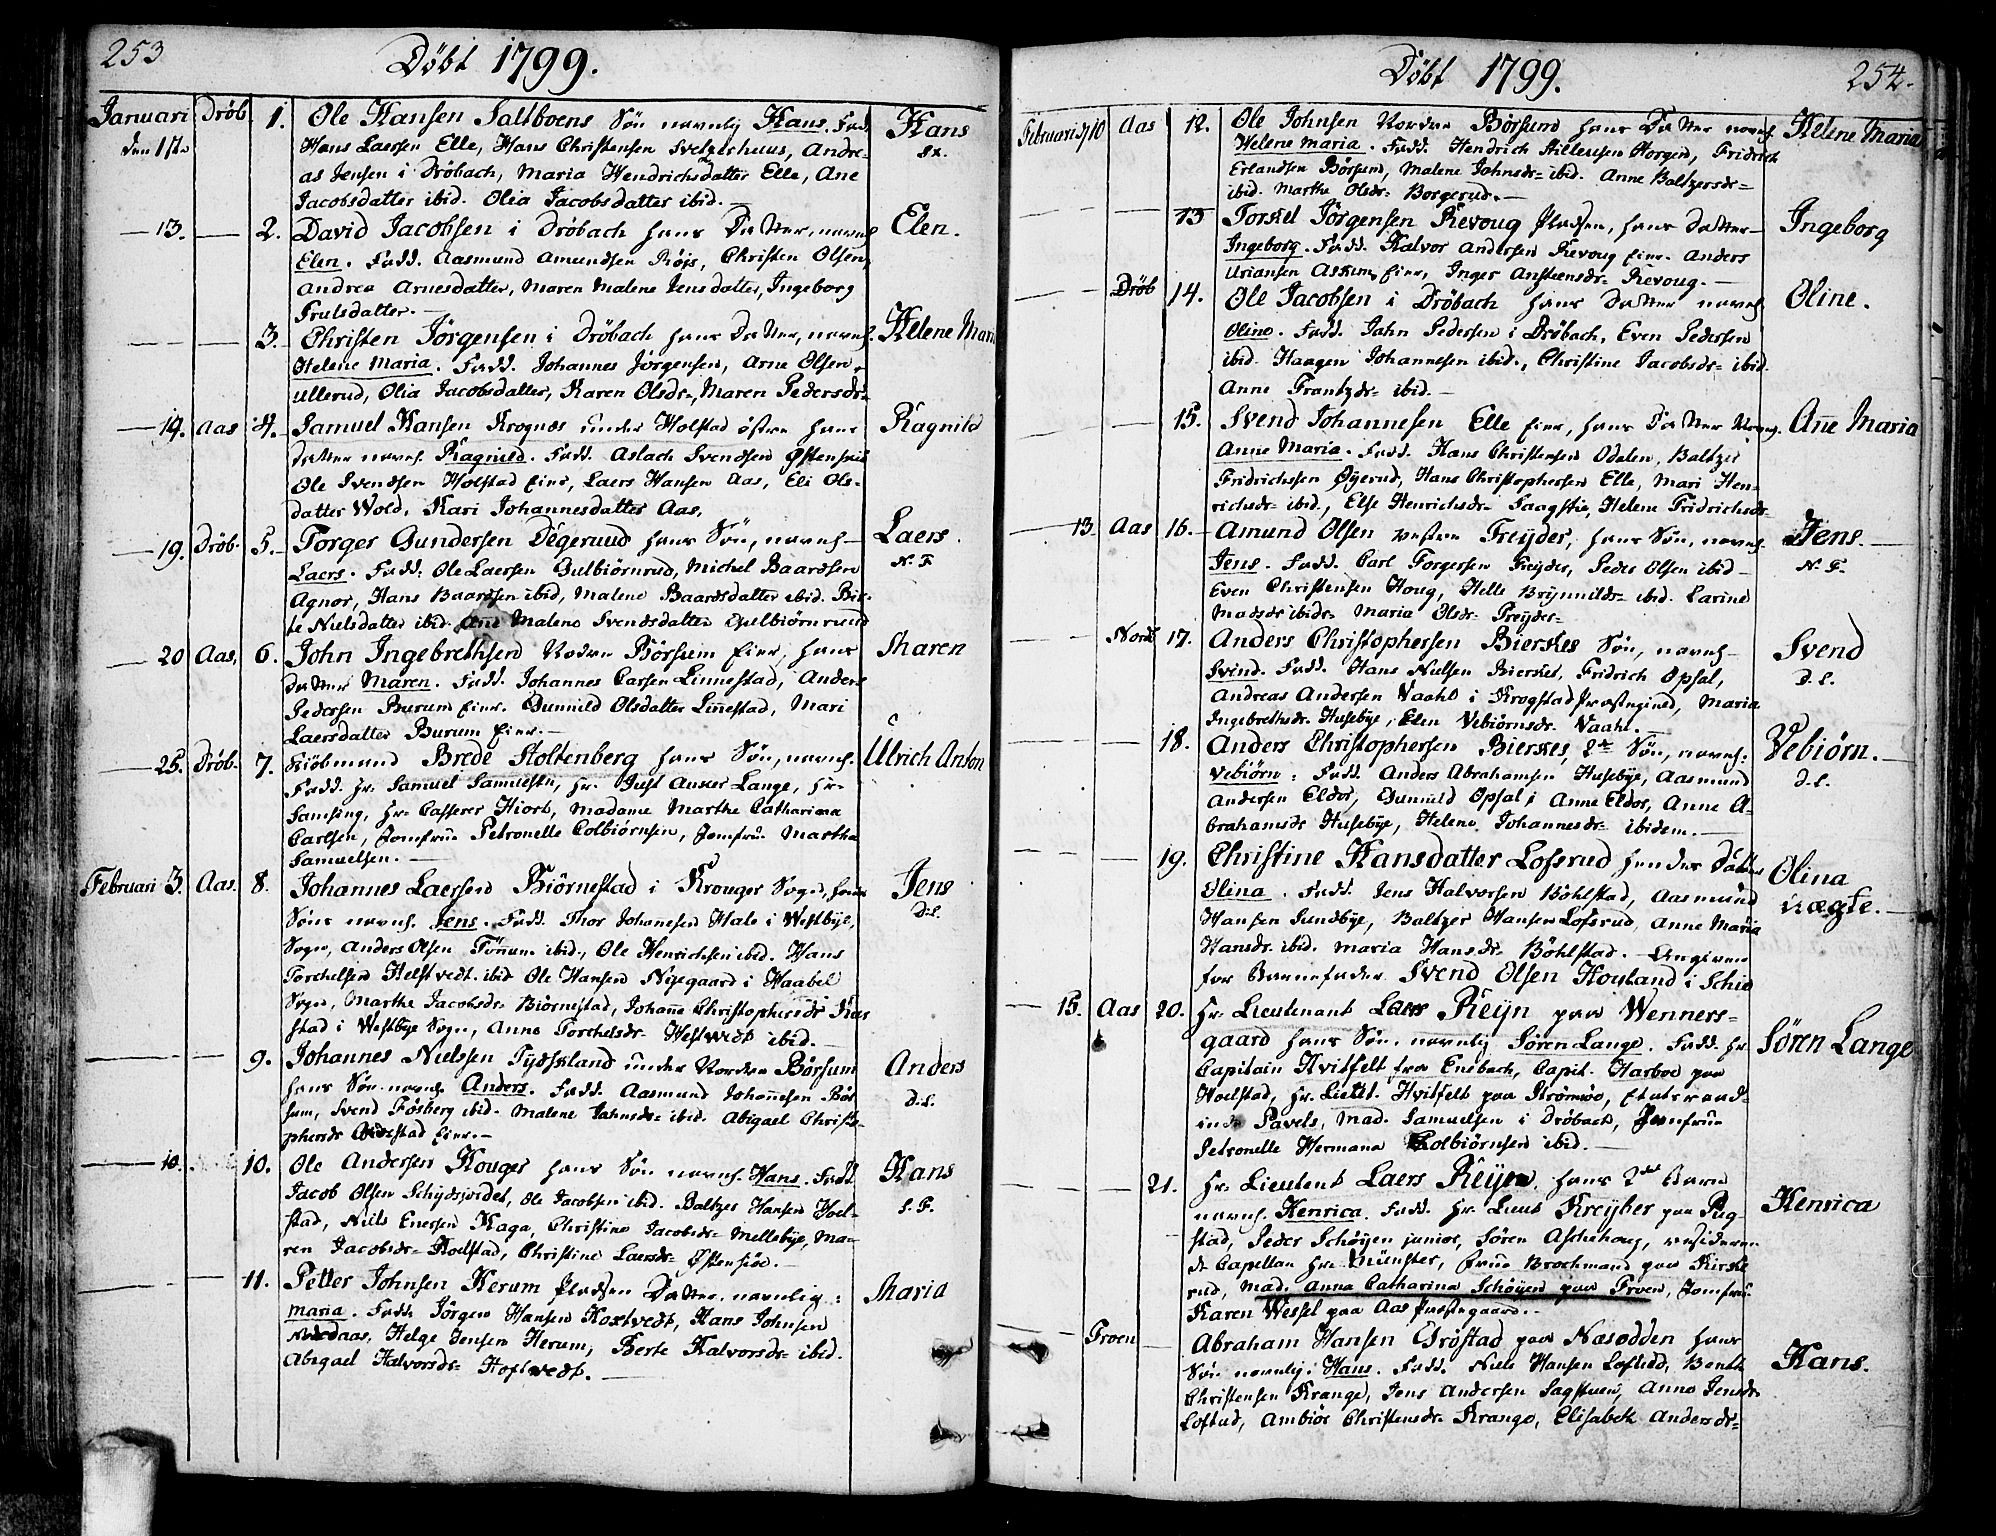 253
Døbt 1799.
Januari Drøb 1. Ole Hansen Saltboens Søn navnlig Hans. Fad. Hans
den 1ste Hans Laersen Elle, Hans Christensen Svetzerhuus, Andre-
as Jensen i Drøbach, Maria Hendrichsdatter Elle, Ane
Jacobsdatter ibid. Olia Jacobsdatter ibid.
13. 2. David Jacobsen i Drøbach hans Datter, navnl. Elen.
Elen. Fadd. Aasmund Amundsen Røjs, Christen Olsen,
Andrea Arnesdatter, Maren Malene Jensdatter, Ingeborg
Trulsdatter.
3. Christen Jørgensen i Drøbach hans Datter, navnl. Helene Maria
Helene Maria. Fadd. Johannes Jørgensen, Arne Olsen
Ullerud, Olia Jacobsdatter, Karen Olsdr, Maren Pedersdr
14. Aas 4. Samuel Hansen Krognæs under Holstad østre hans Ragnild
Datter navnl. Ragnild. Fadd. Aslach Svendsen Østensiøe
Ole Svendsen Holstad Eier, Laers Hansen Aas, Eli Ols-
datter Wold, Kari Johannesdatter Aas.
19. Drøb. 5. Torger Gundersen Degerund hans Søn, navnl. Laers.
Laers. Fadd. Ole Laersen Gulbiørnrud, Michel Baardsen N. F
Agnor, Hans Baardsen ibid, Malene Baardsdatter ibid. Bir-
te Nielsdatter ibid. Ane Malene Svendsdatter Gulbiørnrund
20 Aas, 6. John Ingebrethsen Nodre Børsum Eier, hans Maren
Datter Maren. Fadd. Johannes Carsen Linnestad, Anders
Pedersen Burum Eier. Gunnild Olsdatter Linnestad, Mari
Laersdatter Burum Eier.
25. Drøb. 7. Kiøbmand Brede Stoltenberg hans Søn, navnl. Ulrich Anton
Fadd. Hr. Samuel Samuelsen, Hr. Just Anker Lange, Hr.
Samsing, Hr. Casserer Hiort, Madame Marthe Catharina
Carlsen, Jomfrue Petronelle Colbiørnsen, Jomfru Martha
Samuelsen.
Februari 3. Aas. 8. Johannes Laersen Biørnestad i Krouger Sogn, hans Jens
Søn navnl. Jens. Fadd. Thor Johanesen Hale i Westbye, D.L.
Sogn, Anders Olsen Tønnum ibid, Ole Henrichsen ibid. Hans
Torchelsen Helstvedt ibid Ole Hansen Nyegaard i Haabel
Sogn, Marthe Jacobsdr Biørnestad, Johanne Christophersdr
stad i Westbye Sogn, Anne Torchelsdr Hestwedt ibid.
9. Johannes Nielssen Tydskland under Nordre Børsum Anders
hans Søn navnl. Anders. Fadd. Aasmund Johannesen Bør- D.L.
sum, Svend Fosberg ibid. Malene Jahnsdr ibid. Abigael Christo-
phersdr Eier.
10. 10. Ole Andersen Kouger hans Søn navnl. Hans. Fadd. Hans
Jacob Olsen Schydsjordet, Ole Jacobsen ibid. Baltzer Hansen Hoel- S. F.
stad, Niels Enersen Kaga, Christine Jacobsdr Mellebye, Ma-
ren Jacobsdr Hoelstad, Christine Laersdr Østensiøe.
11. Petter Johnsen Kerum Pladsen Datter navnlig: Maria
Maria. Fadd. Jørgen Hansen Hoxtvedt, Hans Johnsen
Nordaas, Helge Jensen Herum, Berte Halvorsdr ibid.
Abigael Halvorsdr Hoxtvedt.
254.
Døbt 1799.
Februari d 10 Aas 12. Ole Johnsen Nordre Børsum hans Datter navnl. Helene Maria
Helene Maria. Fadd. Hendrich Hillensen Horgen, Fridrich
Erlandsen Børsund, Malene Johnsdr ibid. Anne Baltzersdr
ibid. Marthe Olsdr Borgerud.
13 Torskel Jørgensen Revoug Pladsen, hans Datter Ingeborg
Ingeborg. Fadd. Halvor Andersen Revoug Eier. Anders
Uriansen Askim Eier, Inger Anstensdr Revoug.
Drøb 14. Ole Jacobsen i Drøbach hans Datter navnl. Oline.
Oline. Fadd. Jahn Pedersen i Drøbach, Even Pedersen
ibid. Haagen Johannesen ibid., Christine Jacobsdr ibid.
Anne Frantzdr ibid.
15. Svend Johannesen Elle Eier, hans Datter navnl. Ane Maria
Anne Maria. Fadd. Hans Christensen Odalen, Baltzer
Fridrichssen Øyerud, Hans Christophersen Elle, Mari Hen-
richsdr ibid., Else Henrichsdr Faagstie, Helene Fridrichsdr
13. Aas 16. Amund Olsen vestre Freyder, hans Søn, navnl. Jens.
Jens. Fadd. Carl Torgersen Freyder, Peder Olsen ibid N. F.
Even Christensen Houg, Helle Brynnildr ibid. Larine
Madsdr ibidr Maria Olsdr Freyder
Nord 17. Anders Christophersen Bierskes Søn, navnl. Svend
Svend. Fadd. Hans Nielsen Bierskes, Fridrich Opsal, D.L.
Andreas Andersen Vaaht i Krogstad Præstegield, Maria
Ingebrethsdr Husebye, Elen Vebiørnsdr Vaaht.
18. Anders Christophersen Bierskes, 2de Søn, navnl. Vebiørn.
Vebiørn. Fadd. Anders Abrahamsen Husebye, Aasmund D.L.
Andersen Eldor, Gunnild Opsal, Anne Eldor, Anne A-
brahamsdr Husebye, Helene Johannesdr ibidem.
19. Christine Hansdatter Lofsrud hendes Datter Olina
Olina. Fadd. Jens Halvorsen Bøhlstad, Aasmund uægte.
Hansen Sundbye, Baltzer Hansen Lofsrud, Anne Maria
Hansdr ibid. Maria Hansdr Bøhlstad. Angiven
for Barnefader Svend Olsen Houland i Schie
15. Aas 20. Hr. Lieutenant Laers Reijn paa Wenners- Søren Lange
gaard hans Søn navnlig Søren Lange. Fadd. Hr
Capitain Hvitfelt fra Enebach, Capit. Harboe paa
Hoelstad, Hr. Lieut. Hvitfelt paa Strømøe, Etatsraad-
inde Pavels, Mad. Samuelsen i Drøbach, Jomfrue
Petronelle Hermana Colbiørnsen ibid.
21. Hr. Lieutent Laers Reijn, hans 2det Barn Henrica
navnl. Henrica. Fadd. Hr. Lieut Kreyber paa Pug-
stad, Peder Schøyen junior, Søren Aschehoug, resideren-
de Capellan Hr Münster, Frue Brochmand paa Kirke
rud, Mad. Anna Catharina Schøyen paa Froen, Jomfru
Karen Wessel paa Aas Præstegaard.
Froen Abraham Hansen Grøstad paa Næsodden hans Hans.
Søn navnlig: Hans. Fadd. Niels Hansen Loftud, Bent
Christensen Krange, Jens Andersen Sagstuen, Anne Jensdr
Loftud, Ambiør Christensdr Krange, Elisabet Andersdr